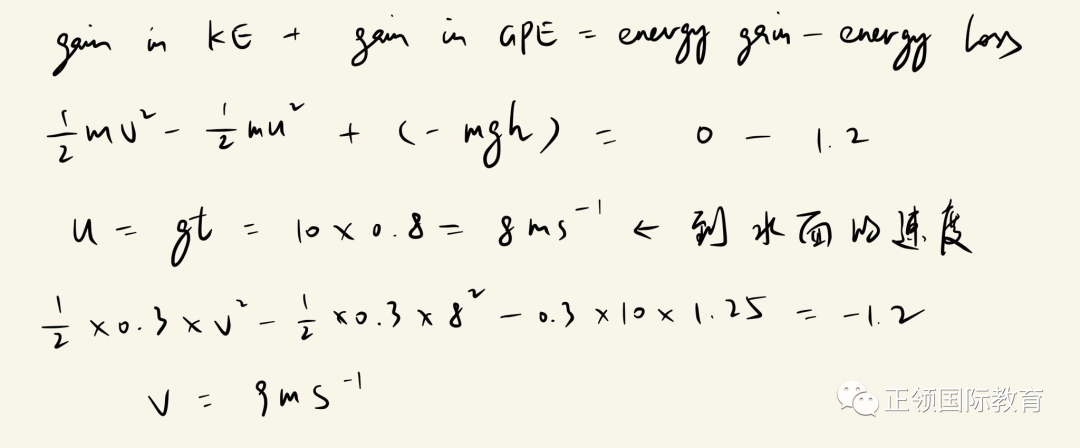 gain in KE + gain in GPE = energy gain - energy loss
½mv² - ½mu² + (-mgh) = 0 - 1.2
u = gt = 10 × 0.8 = 8ms⁻¹ ← 到水面的速度
½ × 0.3 × v² - ½ × 0.3 × 8² - 0.3 × 10 × 1.25 = -1.2
v = 9ms⁻¹
正领国际教育